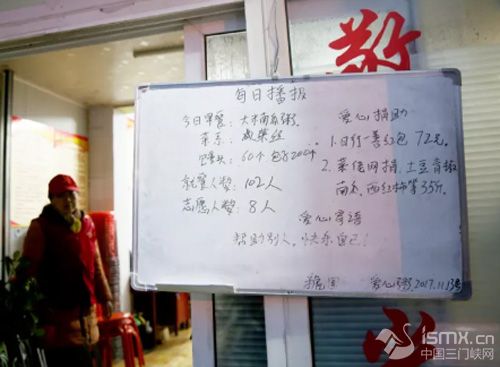 敬
每日播报
今日早餐：大米南瓜粥。
菜系：咸菜丝
馒头：60个 包子200个
就餐人数：102人
志愿人数：8人
爱心捐助
1.日行一善红包 72元。
2.菜信网捐.土豆青椒
南瓜.西红柿等35斤。
爱心寄语
帮助别人，快乐自己！
爱心粥 2017.11.13
ismx.cn
中国三门峡网